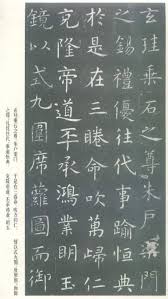 玄珪乘石之尊朱户渠門
之錫禮優往代事踰恒典
於是在三眷命吹萬歸仁
克隆帝道丕承鴻業明玉
鏡以式九圍席蘿圖而御